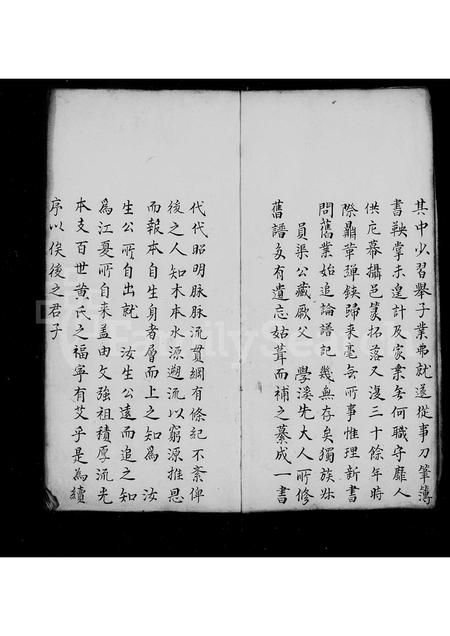 其中少習舉子業弗就遂從事刀筆簿
書鞅掌未遑計及家業無何職守靡人
供庀幕攝邑篆拓落又復三十餘年時
際鼎革彈鋏歸來毫無所事惟理新書
問舊業始追論譜記幾無存矣獨族姪
員渠公藏厥父 學溪先大人所修
舊譜多有遺忘姑葺而補之纂成一書
代代昭明脉脉流貫綱有條紀不紊俾
後之人知木本水源遡流以窮源推恩
而報本自生身者層而上之知為 汝
生公所自出就 汝生公遠而追之知
為江夏所自来盖由文強祖積厚流光
本支百世黄氏之福寧有艾乎是為續
序以俟後之君子
FamilySearch